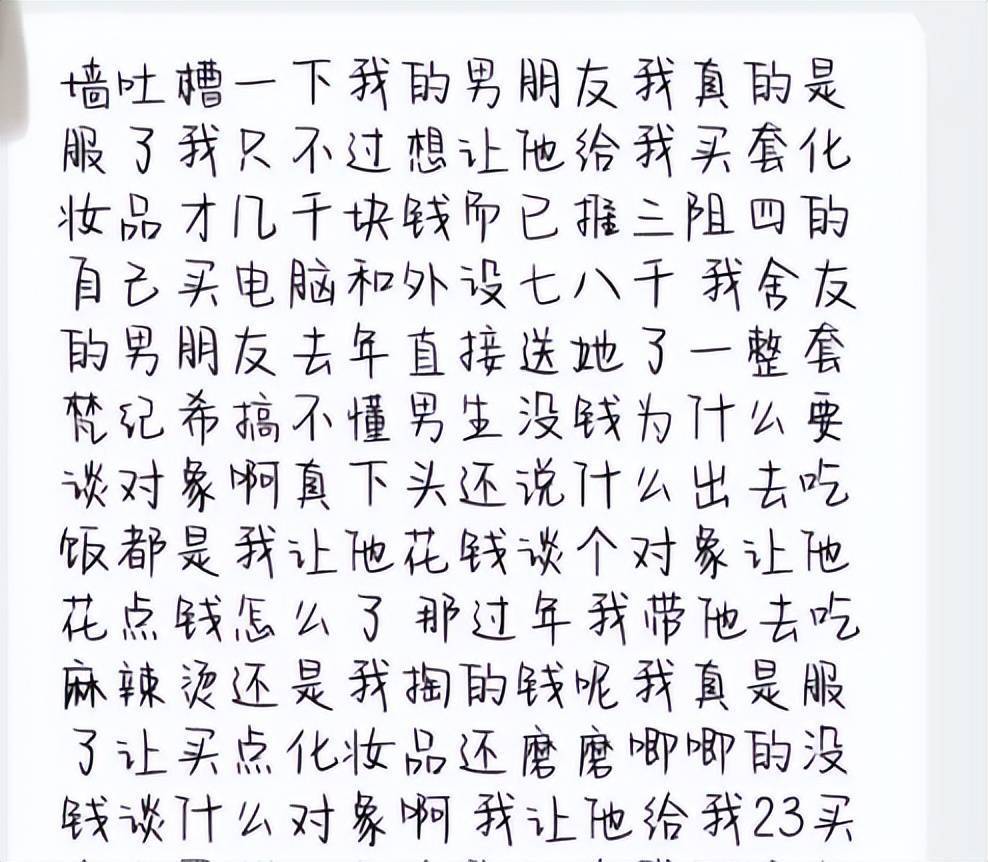 墙吐槽一下我的男朋友我真的是
服了我只不过想让他给我买套化
妆品才几千块钱而已推三阻四的
自己买电脑和外设七八千 我舍友
的男朋友去年直接送她了一整套
梵纪希搞不懂男生没钱为什么要
谈对象啊真下头还说什么出去吃
饭都是我让他花钱谈个对象让他
花点钱怎么了 那过年我带他去吃
麻辣烫还是我掏的钱呢我真是服
了让买点化妆品还磨磨唧唧的没
钱谈什么对象啊 我让他给我23买